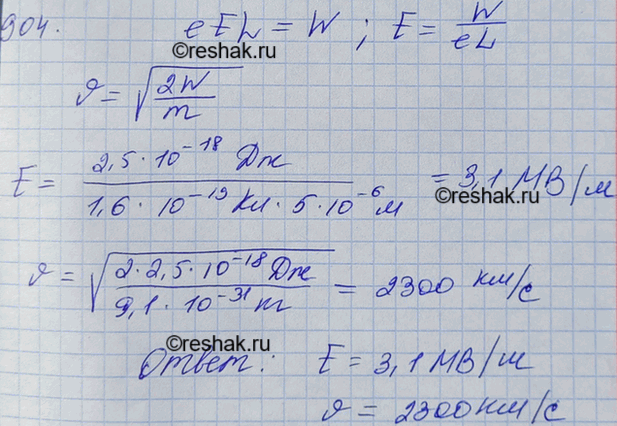 904. eEL = W ; E = W/eL
©reshak.ru
υ = √(2W/m)
E = 2,5·10⁻¹⁸ Дж / 1,6·10⁻¹⁹ Кл·5·10⁻⁶ м = 3,1 МВ/м
©reshak.ru
υ = √(2·2,5·10⁻¹⁸ Дж / 9,1·10⁻³¹ т) = 2300 км/с
©reshak.ru
Ответ: E = 3,1 МВ/м
υ = 2300 км/с